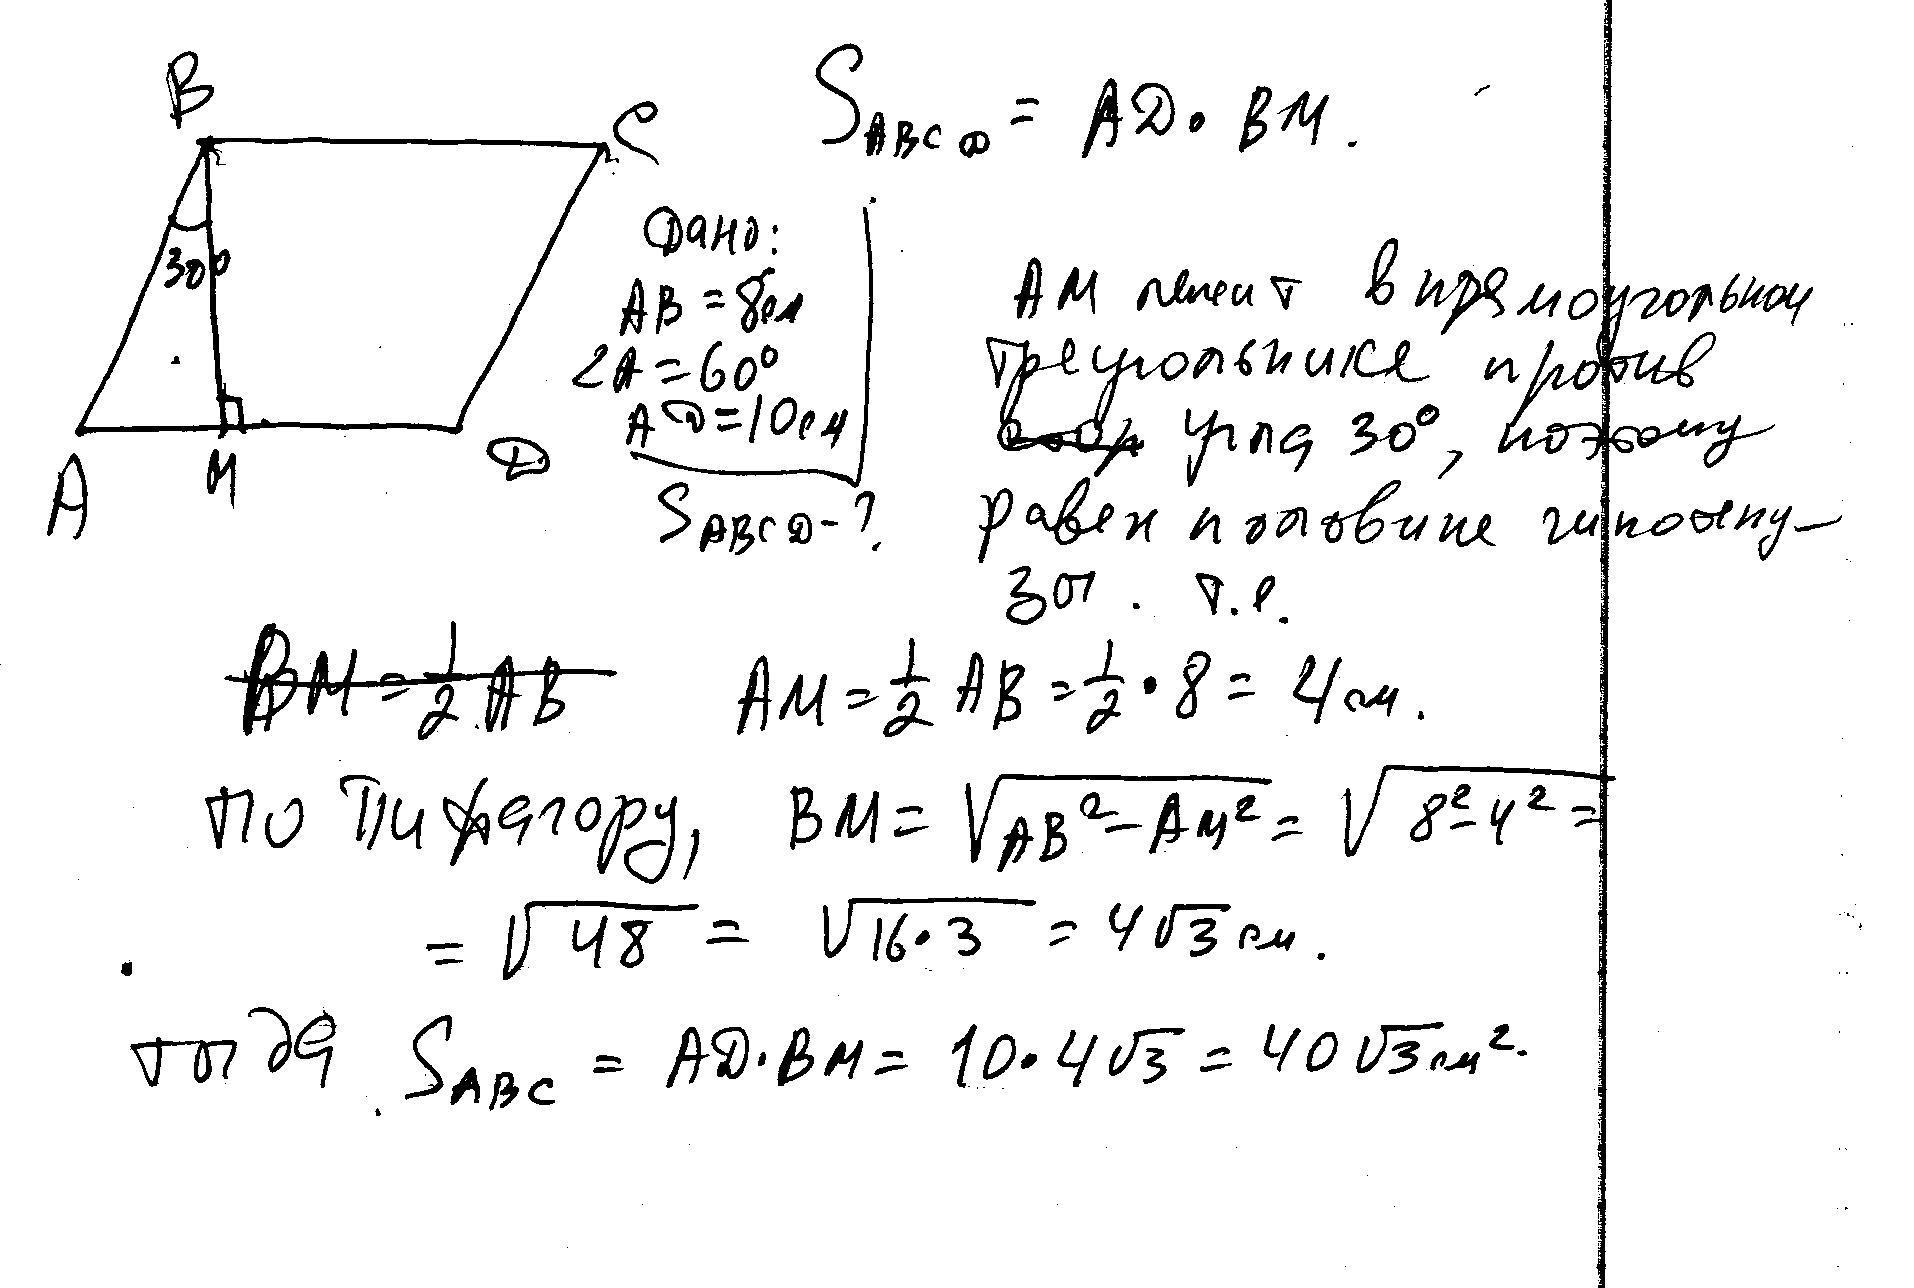 B C
30°
A M D
S_ABCD = AD · BM.
Дано:
AB = 8см
∠A = 60°
AD = 10см
S_ABCD - ?
AM лежит в прямоугольном
треугольнике против
угла 30°, поэтому
равен половине гипотену-
зы. т.е.
BM = 1/2 AB AM = 1/2 AB = 1/2 · 8 = 4 см.
по Пифагору, BM = √(AB² − AM²) = √(8² − 4²) =
= √48 = √(16·3) = 4√3 см.
тогда S_ABC = AD·BM = 10·4√3 = 40√3 см².